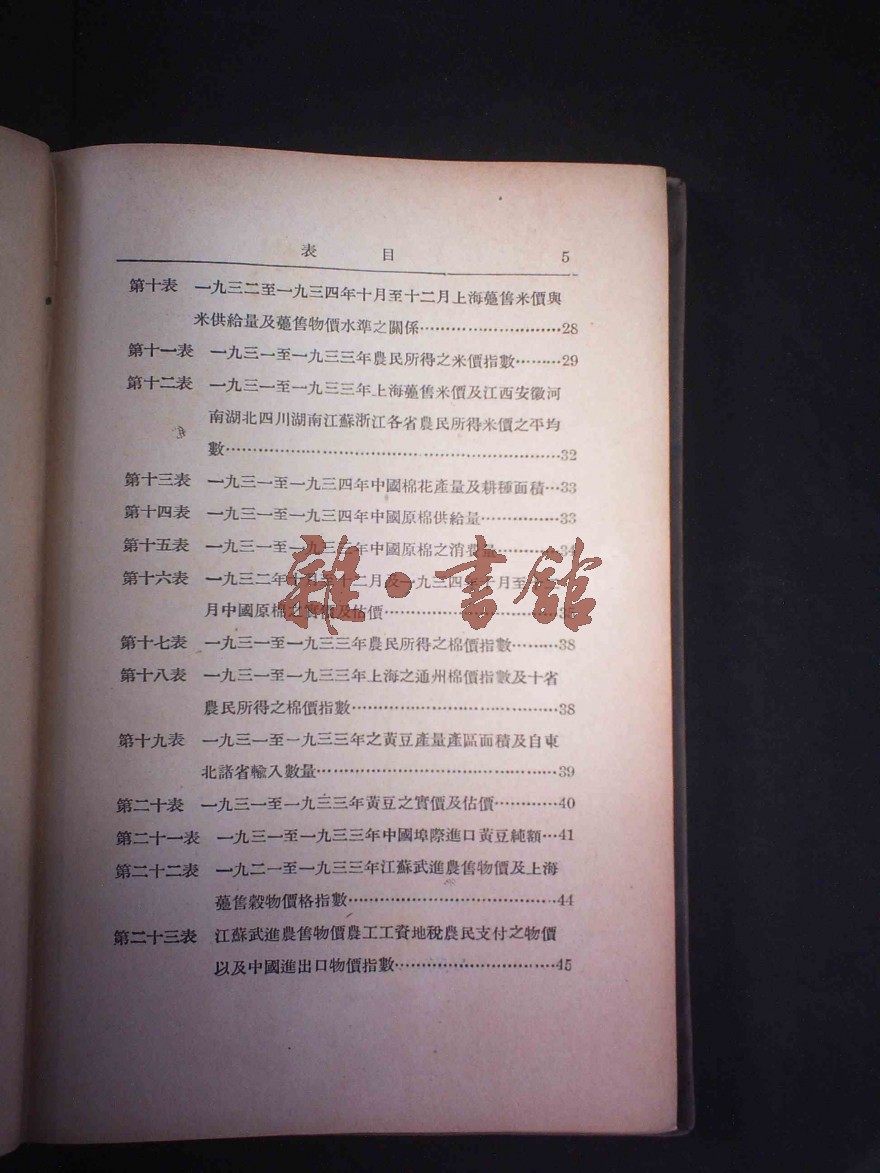 表 目 5
第十表 一九三二至一九三四年十月至十二月上海躉售米價與
米供給量及躉售物價水準之關係……………………28
第十一表 一九三一至一九三三年農民所得之米價指數………29
第十二表 一九三一至一九三三年上海躉售米價及江西安徽河
南湖北四川湖南江蘇浙江各省農民所得米價之平均
數……………………………………………………32
第十三表 一九三一至一九三四年中國棉花產量及耕種面積…33
第十四表 一九三一至一九三四年中國原棉供給量…………33
第十五表 一九三一至一九三三年中國原棉之消費量………34
第十六表 一九三二年十月至十二月及一九三四年十月至
月中國原棉之實價及估價…………………………
第十七表 一九三一至一九三三年農民所得之棉價指數………38
第十八表 一九三一至一九三三年上海之通州棉價指數及十省
農民所得之棉價指數………………………………38
第十九表 一九三一至一九三三年之黃豆產量產區面積及自東
北諸省輸入數量……………………………………39
第二十表 一九三一至一九三三年黃豆之實價及估價…………40
第二十一表 一九三一至一九三三年中國埠際進口黃豆純額…41
第二十二表 一九二一至一九三三年江蘇武進農售物價及上海
躉售穀物價格指數…………………………………44
第二十三表 江蘇武進農售物價農工工資地稅農民支付之物價
以及中國進出口物價指數…………………………45
雜·書館